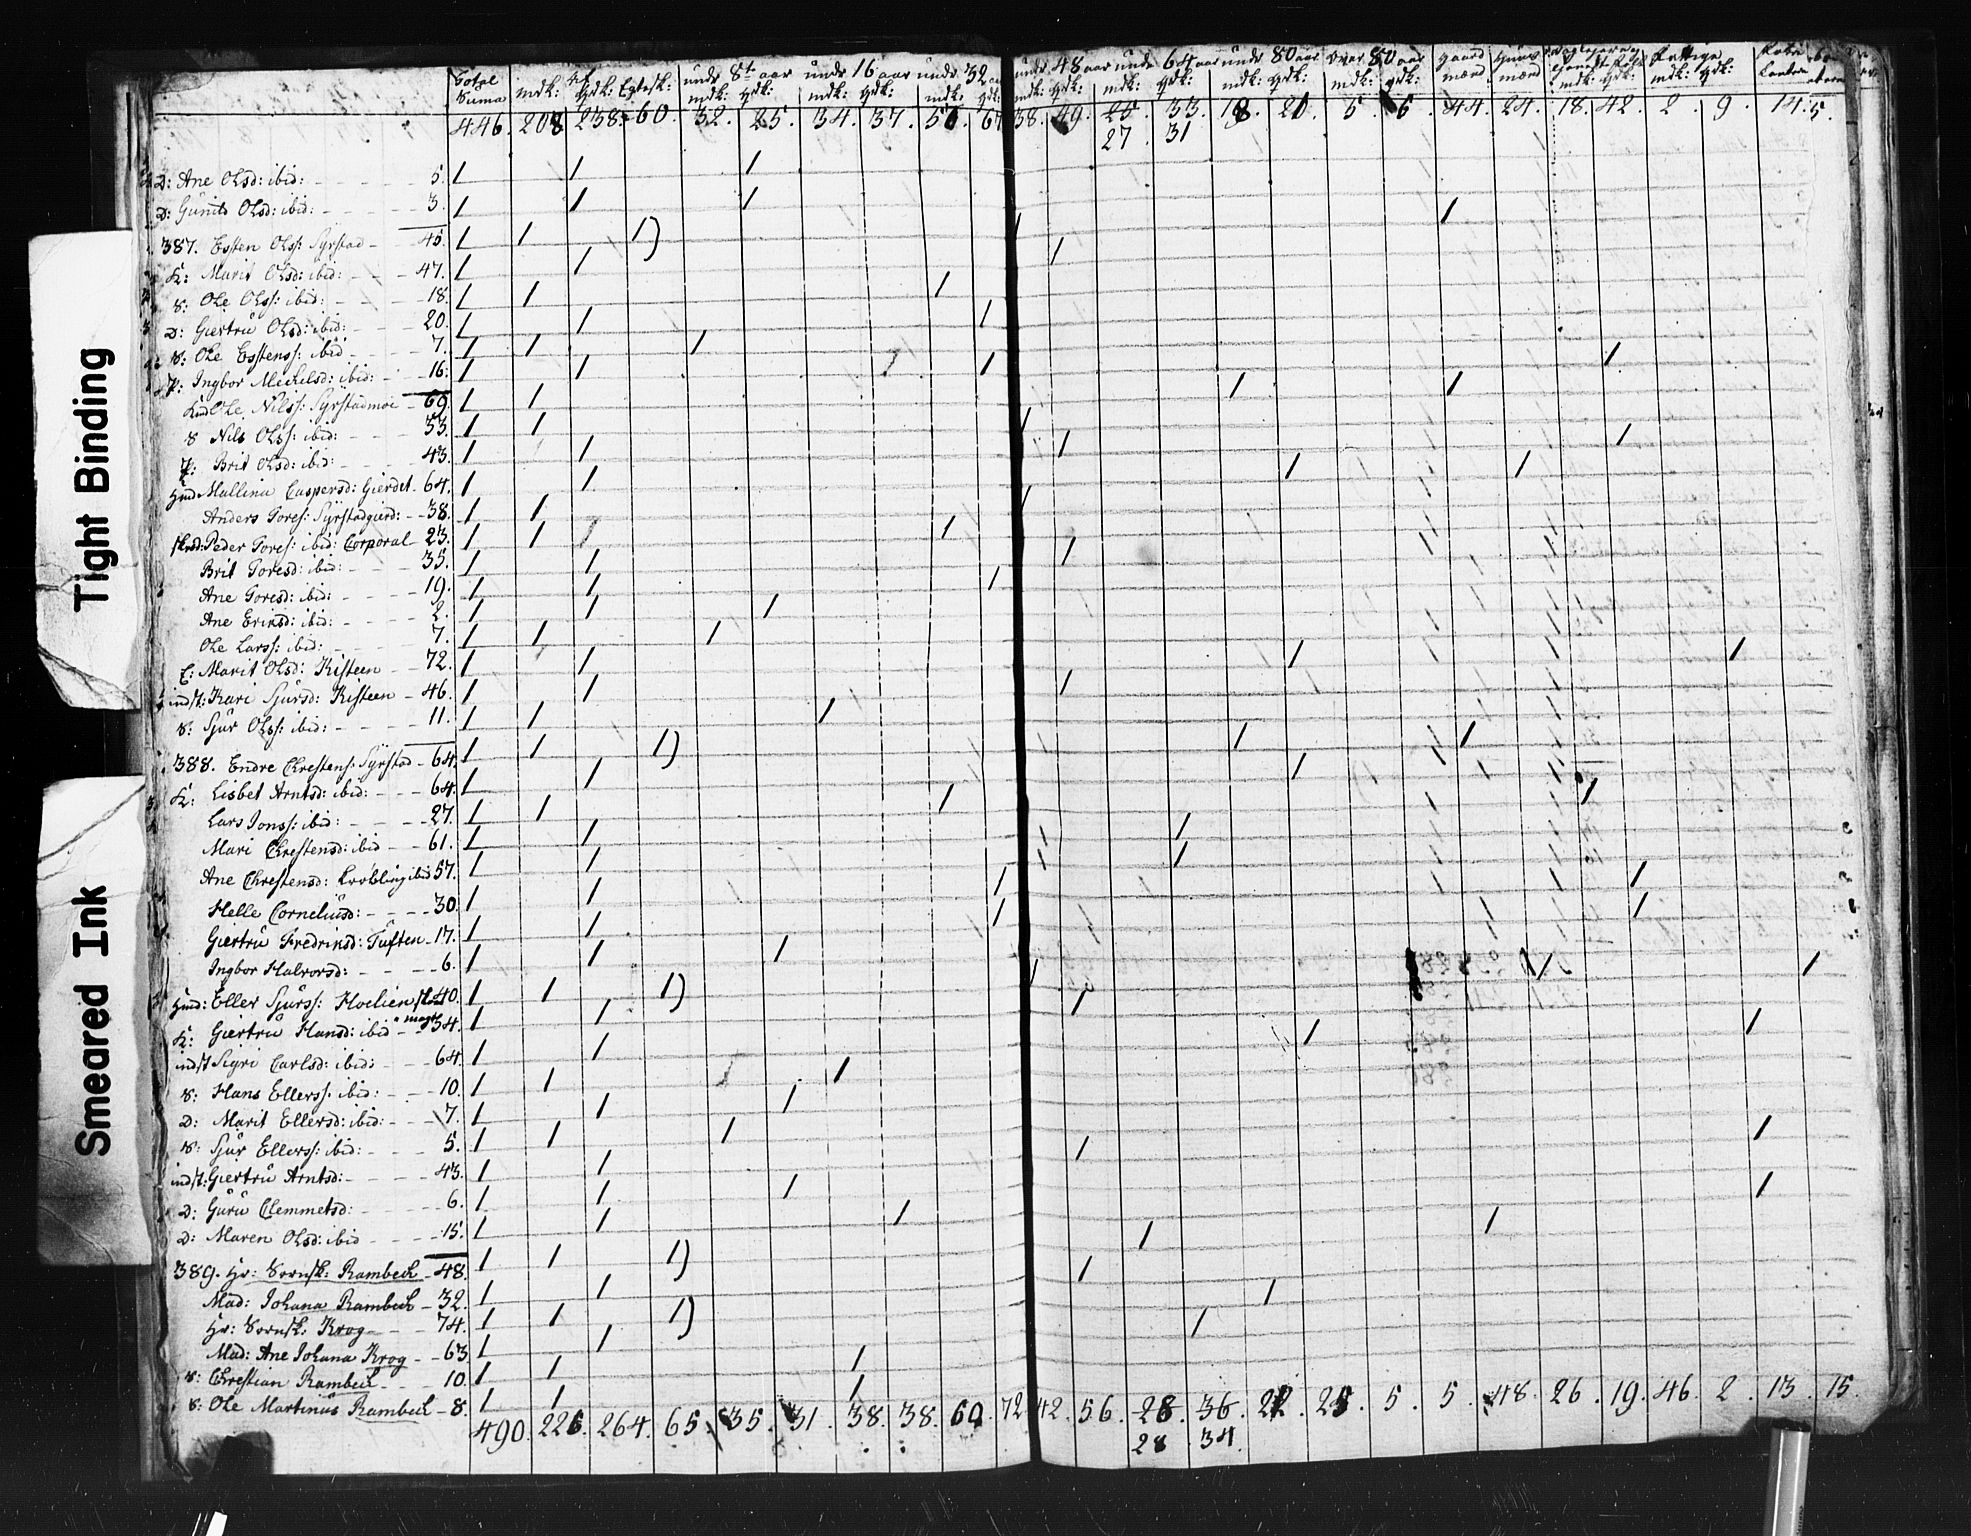 Total Suma mdk: qdk: Egtesk: undr 8t aar mdk: qdk: undr 16 aar mdk: qdk: undr 32 aar mdk: qdk: undr 48 aar mdk: qdk: undr 64 aar mdk: qdk: undr 80 aar mdk: qdk: over 80 aar mdk: qdk: gaard mænd huus mænd mdk: qdk: fattige mdk: qdk:
446. 208 238. 60. 32. 25. 34. 37. 50. 67 38. 49. 25. 33. 19. 20. 5. 6. 44. 24. 18. 42. 2. 9. 14. 5.
27. 31
D: Ane Olsd: ibid: 5. / / /
D: Gunild Olsd: ibid: 3. / / /
387. Esten Olss: Syrstad 45. / / 1) / /
K: Marit Olsd: ibid: 47. / / /
S: Ole Olss: ibid: 18. / / /
D: Giertru Olsd: ibid: 20. / / /
S: Ole Esstenss: ibid 7. / / /
P: Ingbor Mickelsd: ibid: 16. / / / /
Ole Nilss: Syrstadmoe 69. / / / /
S Nils Olss: ibid: 33. / / /
Brit Olsd: ibid: 43. / / / /
Hmd Mallina Caspersd: Gierdet 64. / / / /
Anders Tores: Syrstadgierd: 38. / / /
Peder Tores: ibid: Corporal 23. / / /
Brit Toresd: ibid: 35. / / /
Ane Toresd: ibid: 19. / / /
Ane Erirsd: ibid: 2. / / /
Ole Larss: ibid: 7. / / /
E: Marit Olsd: Risteen 72. / / / /
indst: Kari Sjursd: Risteen 46. / / /
S: Sjur Olss: ibid: 11. / / /
388. Endre Chrestens: Syrstad 64. / / 1) / /
K: Lisbet Arntsd: ibid: 64. / / /
Lars Jonss: ibid: 27. / / / /
Mari Chrestensd: ibid 61. / / /
Ane Chrestensd: Krokling ibid 57. / / /
Helle Corneliusd: 30 / / / /
Giertru Fredrirsd: Tuften 17. / / / /
Ingbor Halvorsd: 6. / / /
Hmd: Eller Sjurss: Hoelien 40. / / 1) / / /
K: Giertru Hansd: ibid 34. / / /
indst Sigri Carlsd: ibid: 64. / / / /
S: Hans Ellerss: ibid: 10. / / /
D: Marit Ellersd: ibid: 7. / / /
S: Sjur Ellerss: ibid: 5. / / /
indst: Giertru Arntsd: 43. / / / /
D: Guru Clemmetsd: 6. / / /
D: Maren Olsd: ibid 15. / / / /
389. Hr: Sornsk: Rambech 48. / / 1) / /
Mad: Johana Rambech 32. / / /
Hr: Sornsk: Krog 74. / / 1) /
Mad: Ane Johana Krog 63. / / /
S: Chrestian Rambech 10. / / /
S: Ole Martinus Rambech 8. / / /
490. 226 264. 65. 35. 31. 38. 38. 60. 72. 42. 56. 28. 36. 22. 25. 5. 5. 48. 26. 19. 46. 2. 13. 15.
28 34.
Tight Binding
Smeared Ink